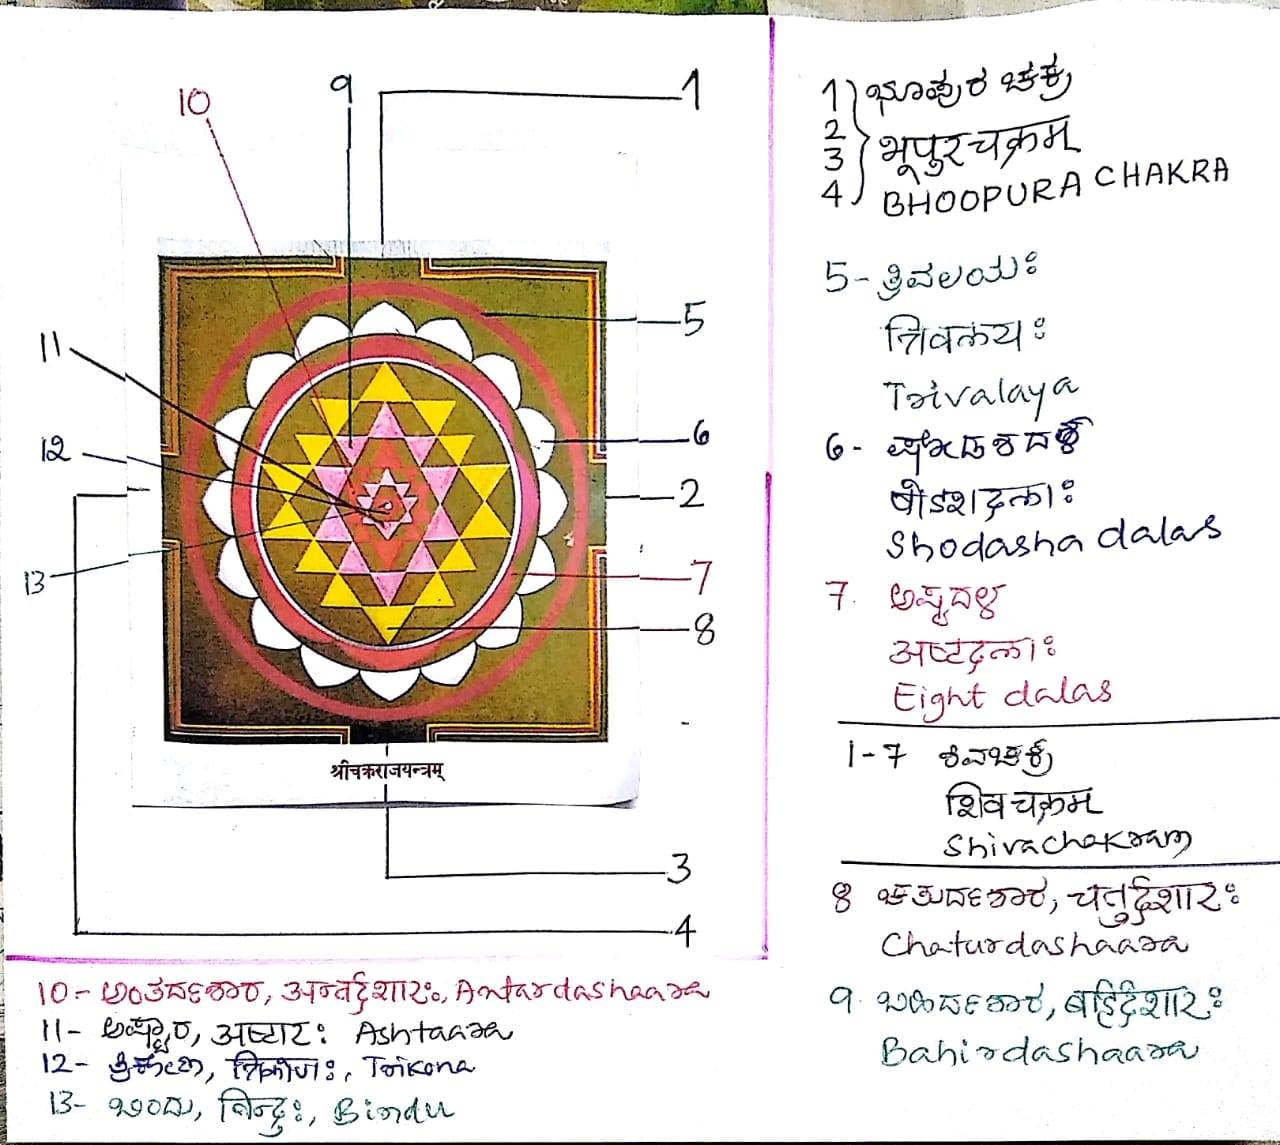 10
9
1
5
11
6
12
2
13
7
8
श्रीचक्रराजयन्त्रम्
3
4
1) ಭೂಪುರ ಚಕ್ರ
2
3 भूपुरचक्रम्
4 BHOOPURA CHAKRA
5- ತ್ರಿವಲಯಃ
त्रिवलयः
Trivalaya
6- ಷೋಡಶದಳ
षोडशदलाः
Shodasha dalas
7. ಅಷ್ಟದಳ
अष्टदलाः
Eight dalas
1-7 ಶಿವಚಕ್ರ
शिवचक्रम्
Shivachakram
8 ಚತುರ್ದಶಾರ, चतुर्दशारः
Chaturdashaara
9. ಬಹಿರ್ದಶಾರ, बहिर्दशारः
Bahirdashaara
10- ಅಂತರ್ದಶಾರ, अन्तर्दशारः, Antardashaara
11- ಅಷ್ಟಾರ, अष्टारः Ashtaara
12- ತ್ರಿಕೋಣ, त्रिकोणः, Trikona
13- ಬಿಂದು, बिन्दुः, Bindu